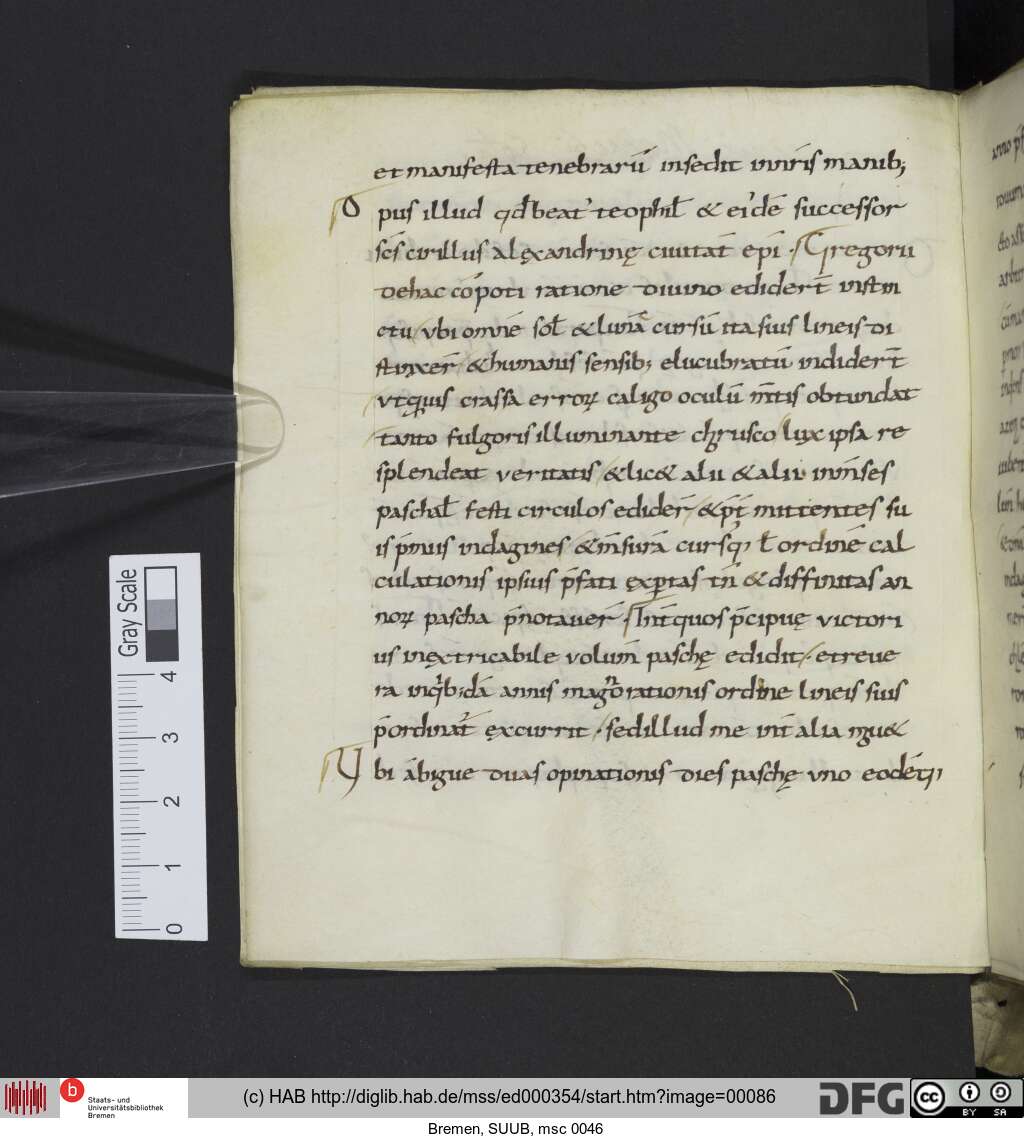 et manifesta tenebrarū insedit inniris manib;
O pus illud qđ beat' teophił & ei'dē successor
scs cirillus alęxandrinę ciuitat̄ epi · Gregorii
dehac cōpoti ratione diuino ediderт̄ instin
ctu / vbi omnē soł & lunā cursū ita suis lineis di
stinxer̄ / & humanis sensib; elucubratū indiderт̄
vtquis crassa errorꝝ caligo oculū m̄tis obtundat
tanto fulgoris illuminante chrusco lux ipsa re
splendeat veritatis / & lic& alii & alii inm̄ses
paschał festi circulos edider̄ / & p̄t mittentes su
is p̄mus indagines & m̄surā cursq' ł ordinē cal
culationis ipsius p̄fati ęxp̄tas tn̄ & diffinitas an
norꝝ pascha p̄notauer̄ · Int̄quos p̄cipuę victori
us inęxtricabile volum̄ paschę edidit / · et reue
ra inqb'dā annis magrationis ordine lineis suis
p̄ordinat̄ ęxcurrit / · sed illud me int̄ alia ngu&
V bi ābigue duas opinationis dies paschę vno eodēq;
Gray Scale
4
3
2
1
0
b
Staats- und
Universitätsbibliothek
Bremen
(c) HAB http://diglib.hab.de/mss/ed000354/start.htm?image=00086
DFG
cc
BY SA
Bremen, SUUB, msc 0046